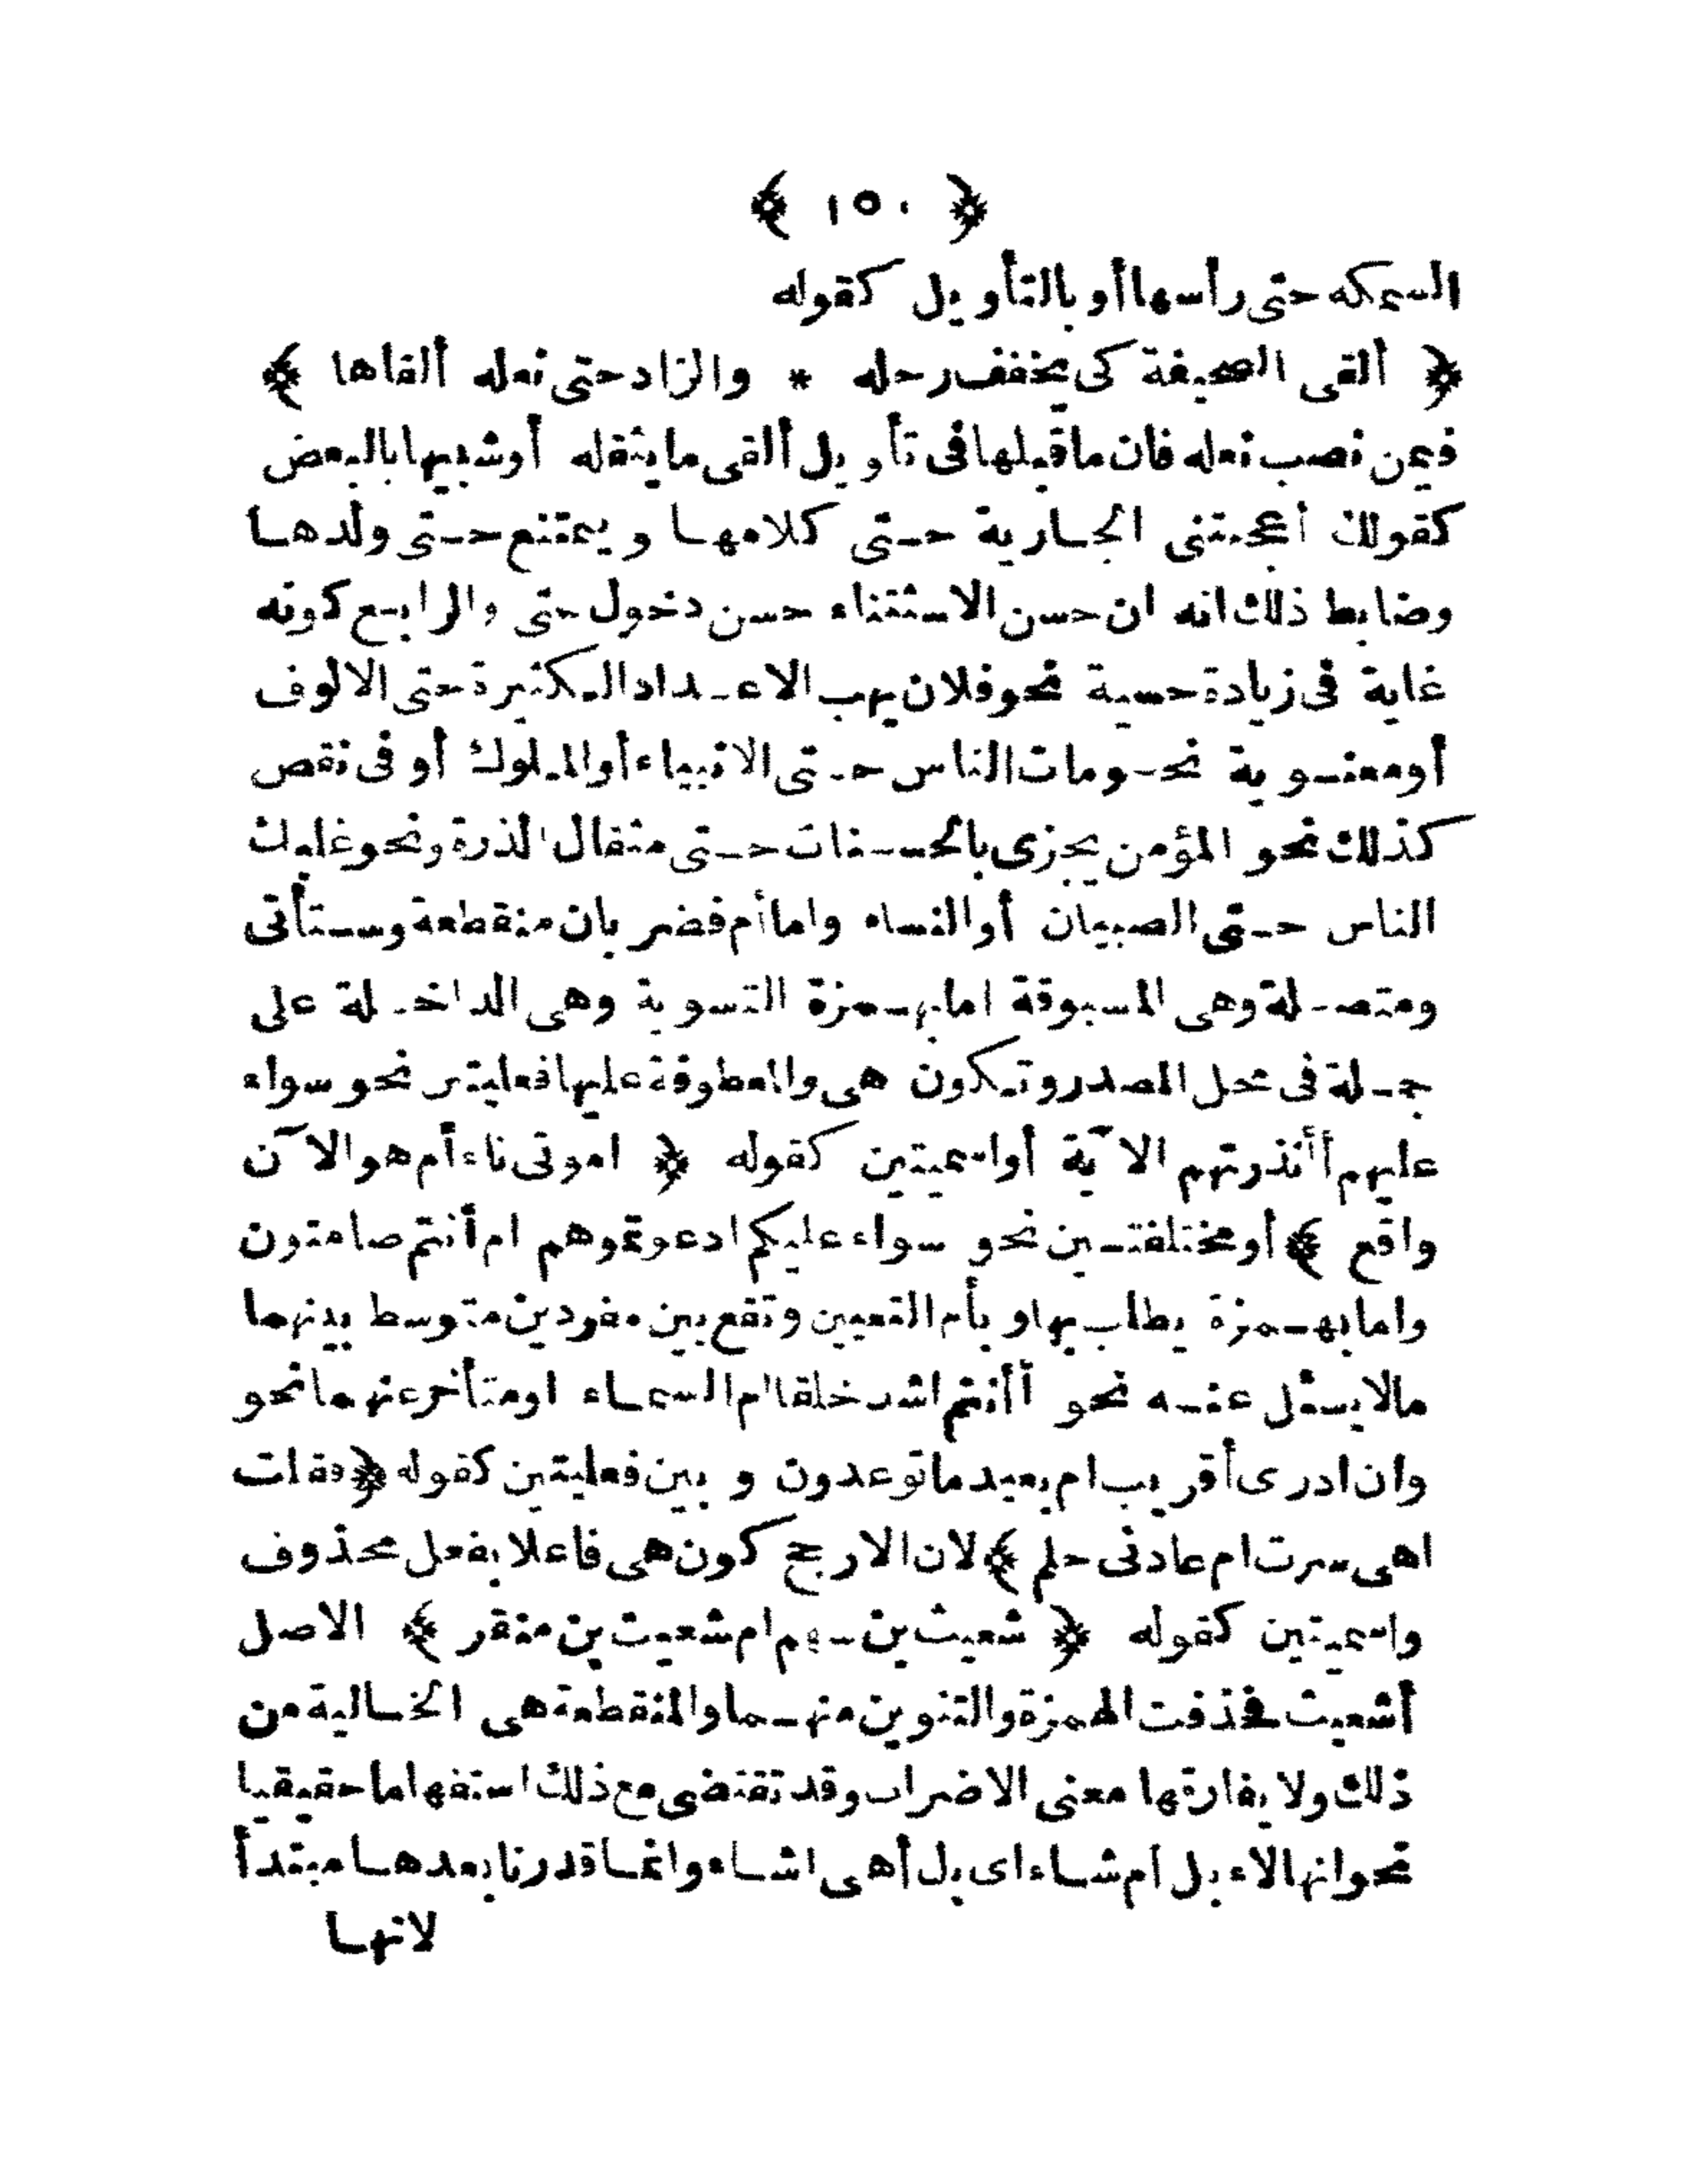 ﴿ ١٥٠ ﴾
السمكه حتى رأسها أو بالتأويل كقوله
﴿ ألقى الصحيفة كى يخفف رحله * والزاد حتى نعله ألقاها ﴾
فيمن نصب نعله فان ما قبلها فى تأويل ألقى ما يثقله أو شبيها بالبعض
كقولك أعجبتنى الجارية حتى كلامها ويمتنع حتى ولدها
وضابط ذلك انه ان حسن الاستثناء حسن دخول حتى والرابع كونه
غاية فى زيادة حسية نحو فلان يهب الاعداد الكثيرة حتى الالوف
أو معنوية نحو مات الناس حتى الانبياء أو الملوك أو فى نقص
كذلك نحو المؤمن يجزى بالحسنات حتى مثقال الذرة ونحو غلبك
الناس حتى الصبيان أو النساء واما أم فضربان منقطعة وستأتى
ومتصلة وهى المسبوقة اما بهمزة التسوية وهى الداخلة على
جملة فى محل المصدر وتكون هى والمعطوفة عليها فعليتين نحو سواء
عليهم أأنذرتهم الآية أو اسميتين كقوله ﴿ اموتى ناء أم هو الآن
واقع ﴾ أو مختلفتين نحو سواء عليكم ادعوتموهم ام أنتم صامتون
واما بهمزة يطلب بها وبأم التعيين وتقع بين مفردين متوسط بينهما
مالا يسئل عنه نحو أأنتم اشد خلقا ام السماء او متأخر عنهما نحو
وان ادرى أقريب ام بعيد ما توعدون وبين فعليتين كقوله ﴿ فقلت
اهى سرت ام عادنى حلم ﴾ لان الارجح كون هى فاعلا بفعل محذوف
واسميتين كقوله ﴿ شعيث بن سهم ام شعيث بن منقر ﴾ الاصل
أشعيث فحذفت الهمزة والتنوين منهما والمنقطعة هى الخالية من
ذلك ولا يفارقها معنى الاضراب وقد تقتضى مع ذلك استفهاما حقيقيا
نحو انها لا ء بل أم شاء اى بل أهى اشاء وانما قدرنا بعدها مبتدأ
لانها